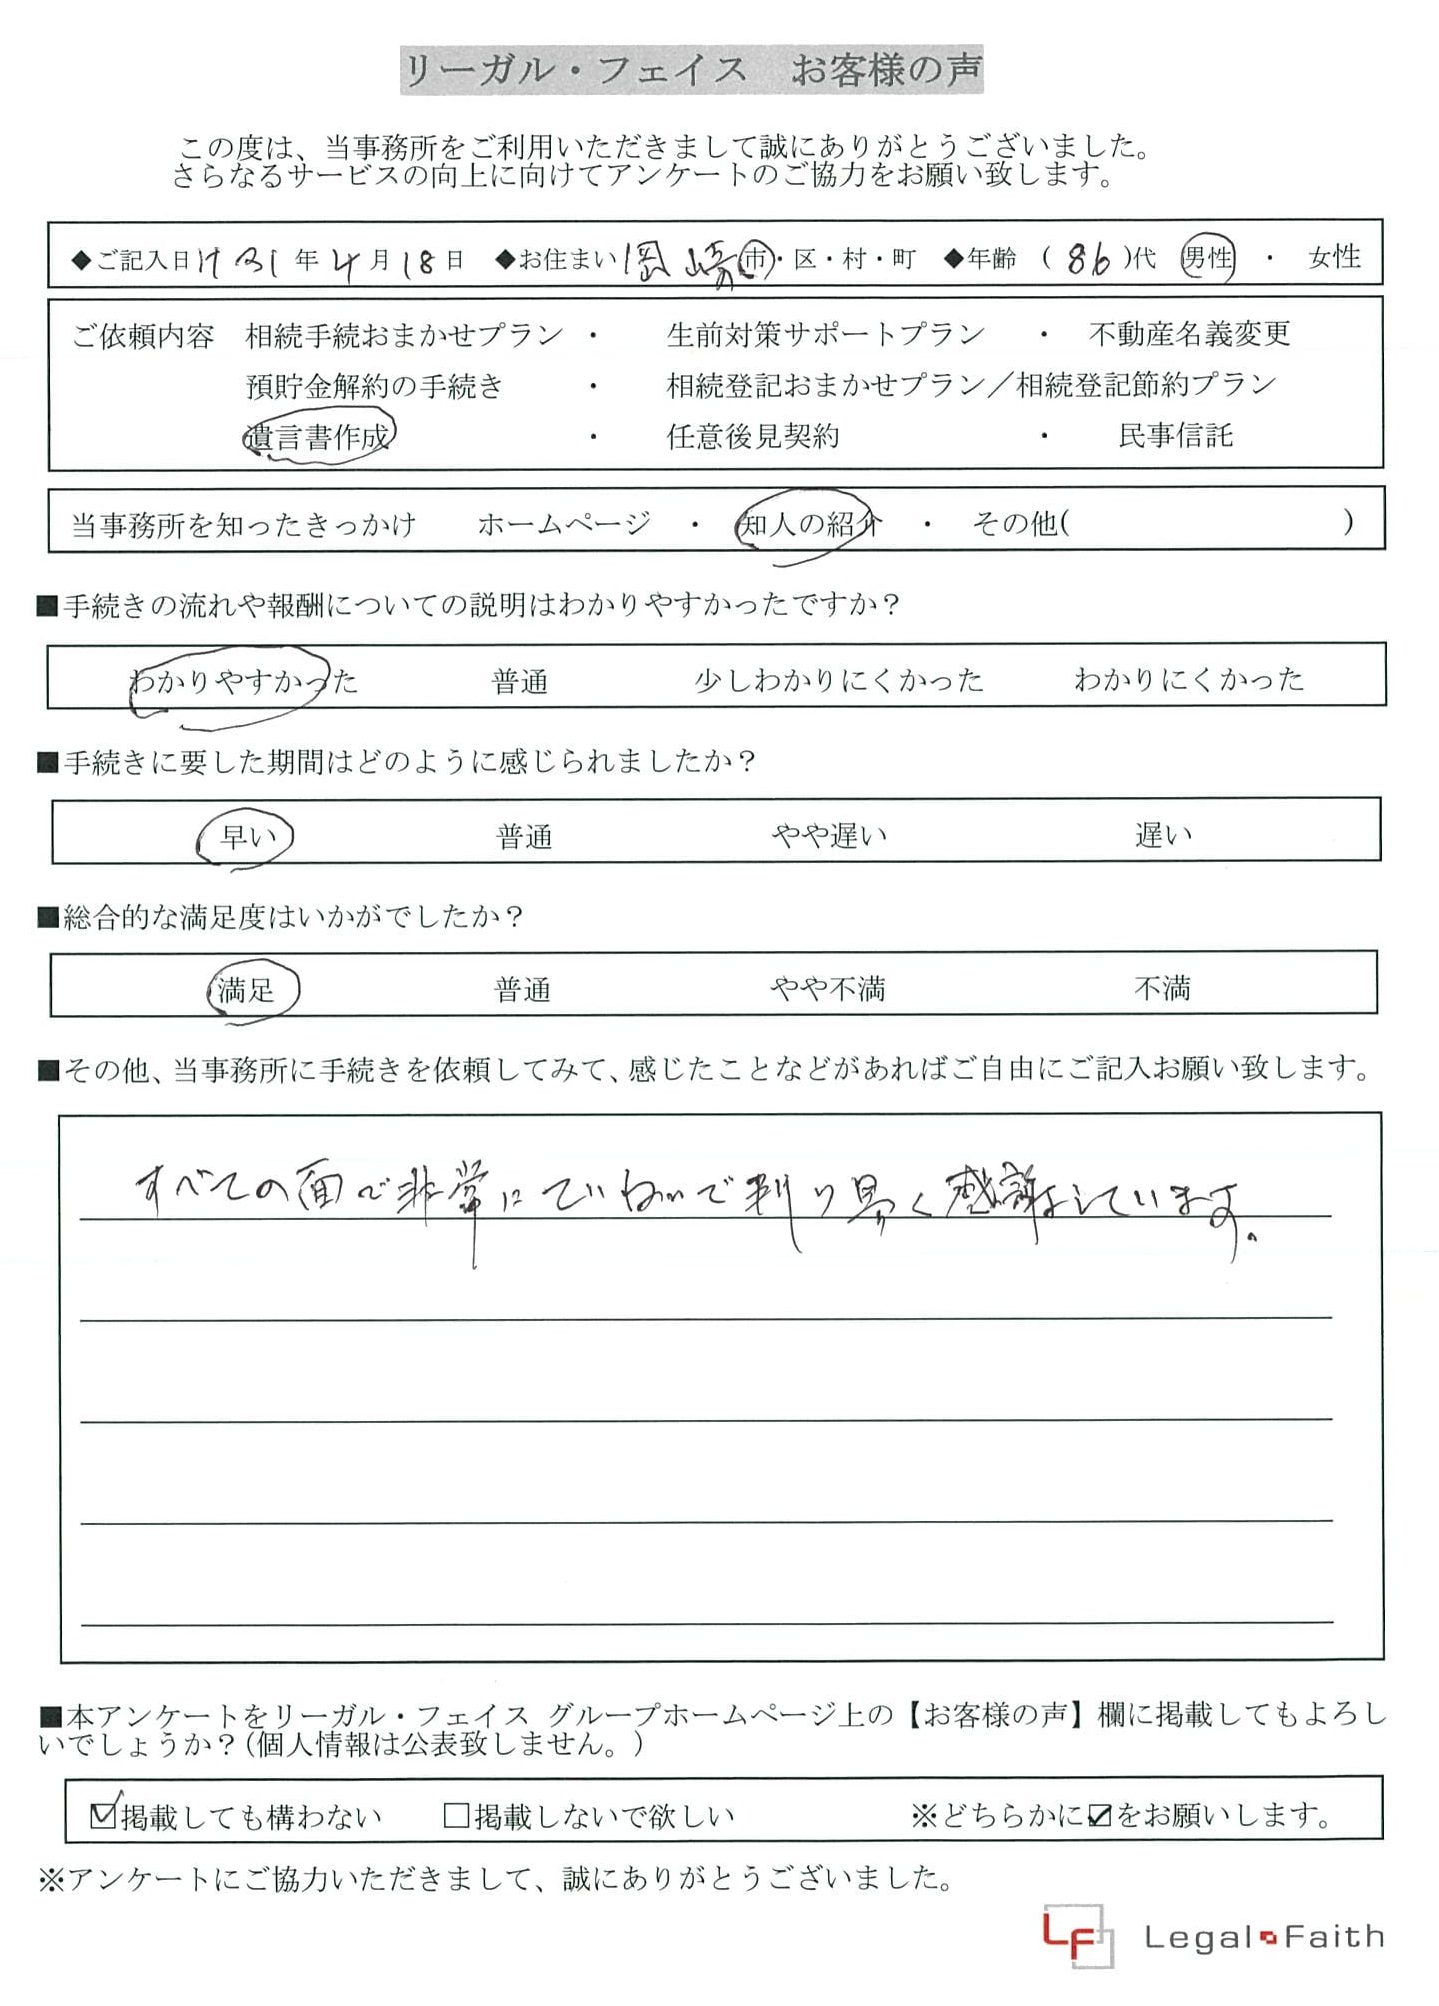 リーガル・フェイス　お客様の声
この度は、当事務所をご利用いただきまして誠にありがとうございました。
さらなるサービスの向上に向けてアンケートのご協力をお願い致します。
◆ご記入日 H31年4月18日 ◆お住まい 岡崎 市・区・村・町 ◆年齢 (86)代 男性 ・ 女性
ご依頼内容 相続手続おまかせプラン ・ 生前対策サポートプラン ・ 不動産名義変更
預貯金解約の手続き ・ 相続登記おまかせプラン／相続登記節約プラン
遺言書作成 ・ 任意後見契約 ・ 民事信託
当事務所を知ったきっかけ ホームページ ・ 知人の紹介 ・ その他( )
■手続きの流れや報酬についての説明はわかりやすかったですか？
わかりやすかった 普通 少しわかりにくかった わかりにくかった
■手続きに要した期間はどのように感じられましたか？
早い 普通 やや遅い 遅い
■総合的な満足度はいかがでしたか？
満足 普通 やや不満 不満
■その他、当事務所に手続きを依頼してみて、感じたことなどがあればご自由にご記入お願い致します。
すべての面で非常にていねいで判り易く感謝しています。
■本アンケートをリーガル・フェイス グループホームページ上の【お客様の声】欄に掲載してもよろし
いでしょうか？(個人情報は公表致しません。)
☑掲載しても構わない □掲載しないで欲しい ※どちらかに☑をお願いします。
※アンケートにご協力いただきまして、誠にありがとうございました。
LF Legal Faith